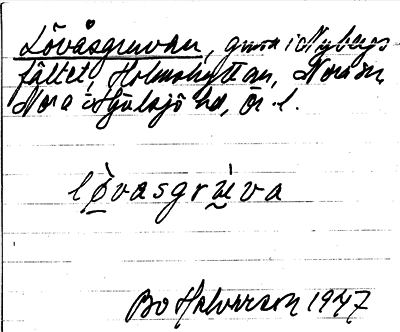 Lövåsgruvan, gruva i Nybergs
fältet, Holmshyttan, Nora sn,
Nora o Hjulsjö hd, Ör. l.
lø̀vasgrù̱va
Bo Halvarson 1947